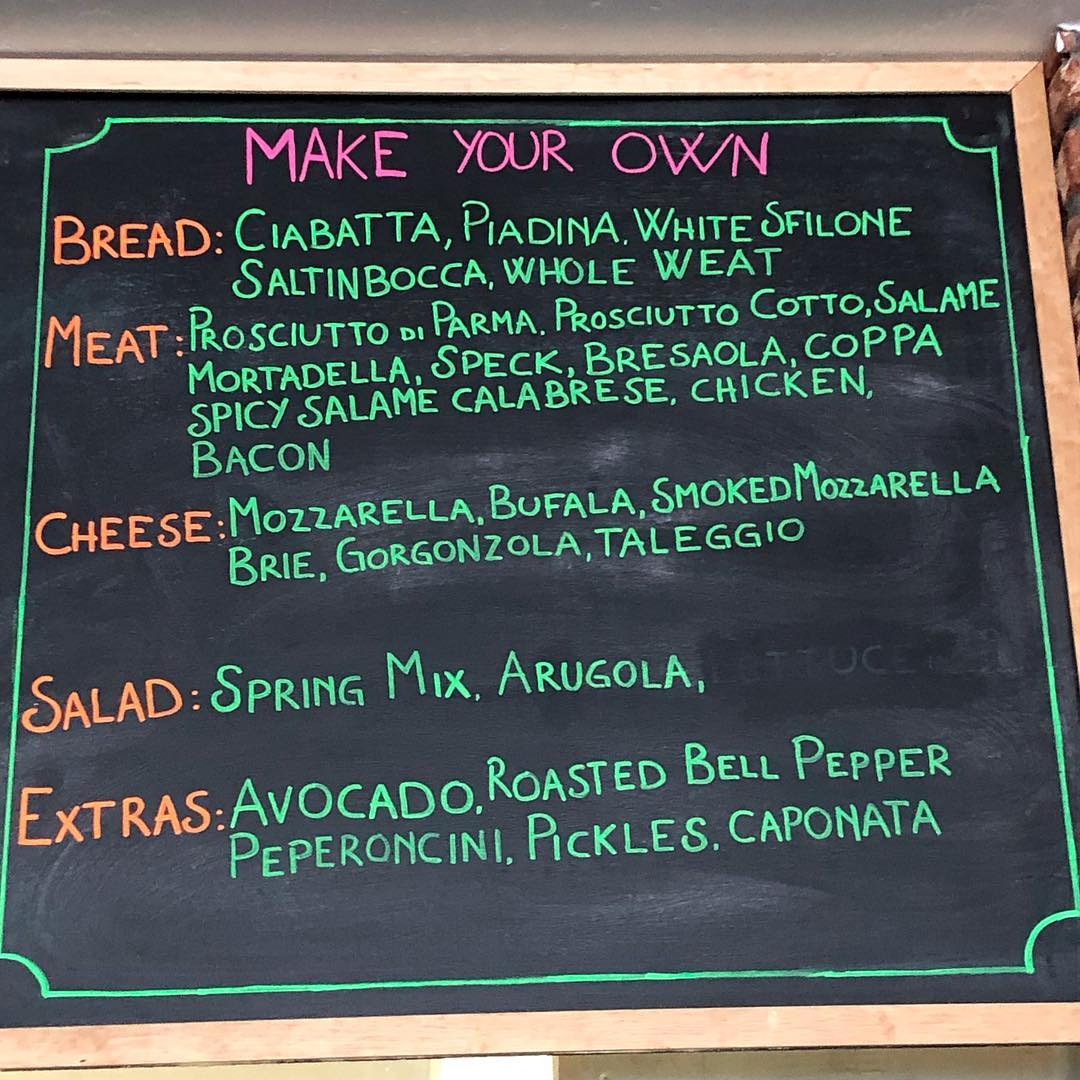 MAKE YOUR OWN
BREAD: CIABATTA, PIADINA, WHITE SFILONE
SALTINBOCCA, WHOLE WEAT
MEAT: PROSCIUTTO DI PARMA, PROSCIUTTO COTTO, SALAME
MORTADELLA, SPECK, BRESAOLA, COPPA
SPICY SALAME CALABRESE, CHICKEN,
BACON
CHEESE: MOZZARELLA, BUFALA, SMOKED MOZZARELLA
BRIE, GORGONZOLA, TALEGGIO
SALAD: SPRING MIX, ARUGOLA,
EXTRAS: AVOCADO, ROASTED BELL PEPPER
PEPERONCINI, PICKLES, CAPONATA